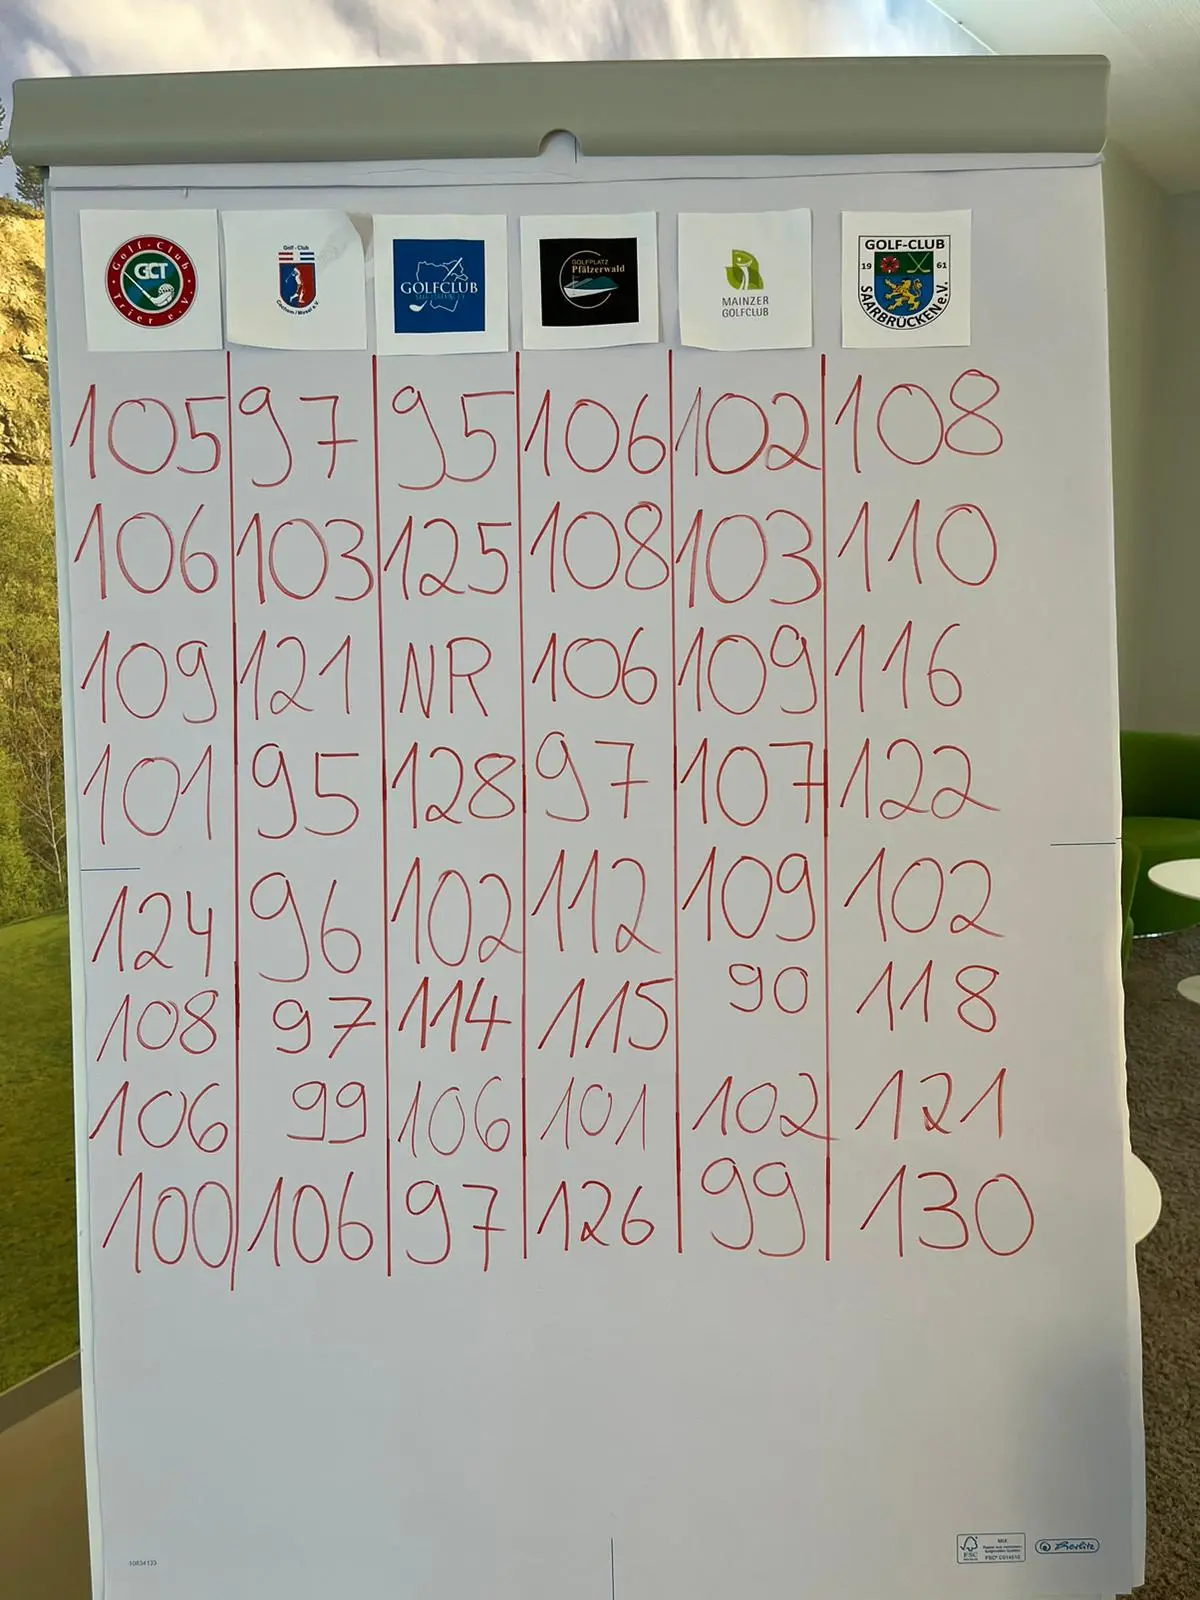 Golf-Club Trier e.V.
GCT
Golf - Club
Cochem / Mosel e.V.
GOLFCLUB
GOLFPLATZ
Pfälzerwald
MAINZER
GOLFCLUB
GOLF-CLUB
19 61
SAARBRÜCKEN e.V.
105 97 95 106 102 108
106 103 125 108 103 110
109 121 NR 106 109 116
101 95 128 97 107 122
124 96 102 112 109 102
108 97 114 115 90 118
106 99 106 101 102 121
100 106 97 126 99 130
10834133
FSC
MIX
Herlitz